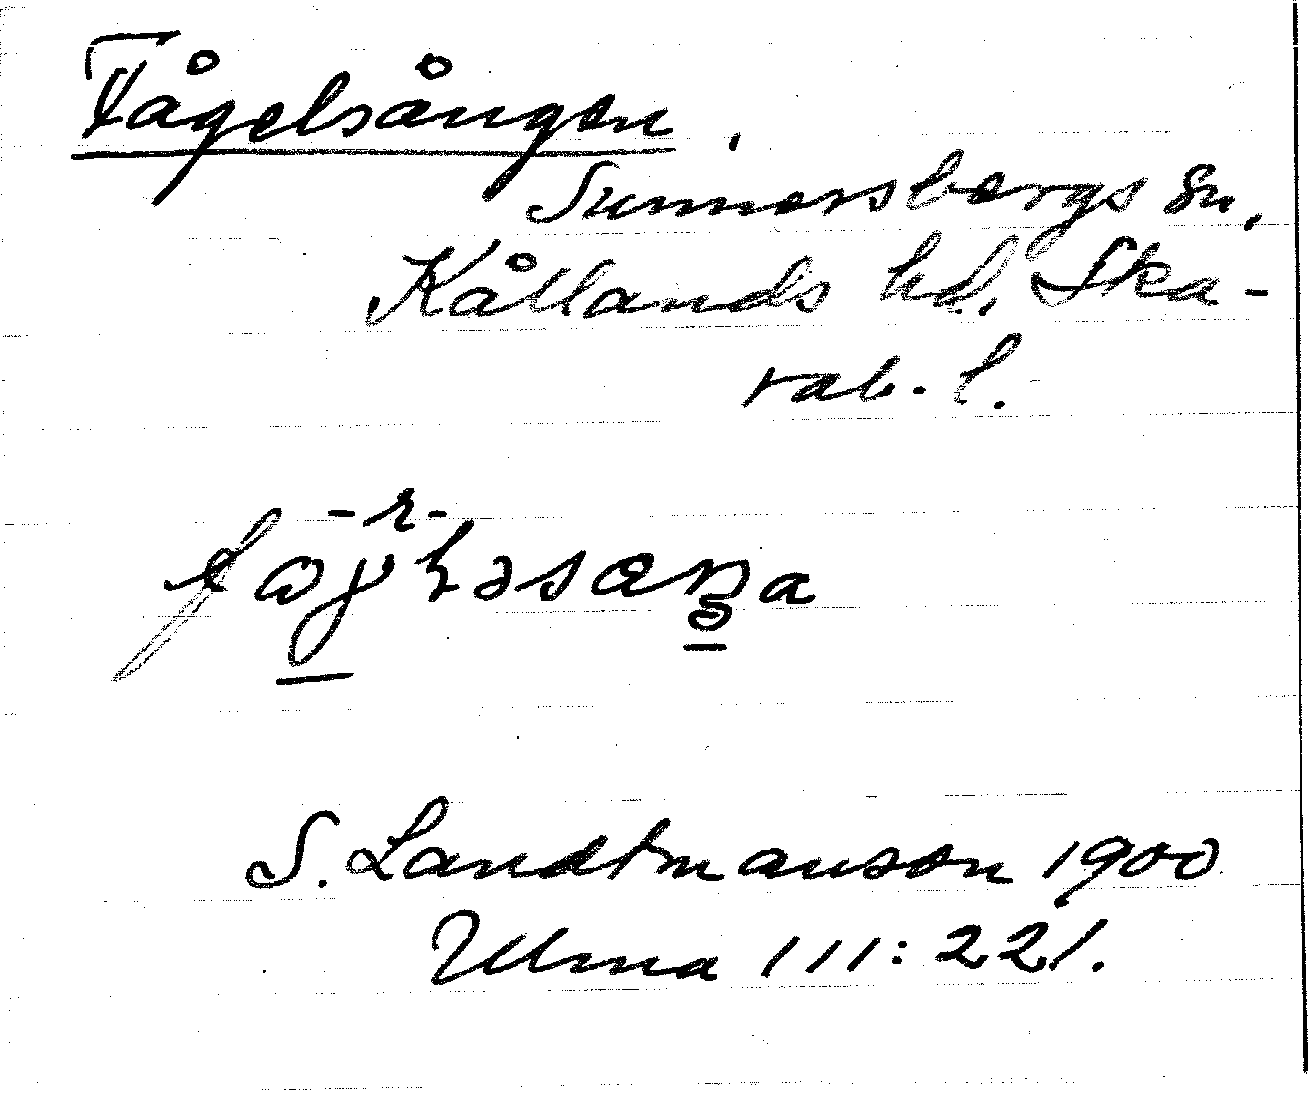 Fågelsången.
Sunnersbergs sn.
Kållands hd. Ska-
rab. l.
-r-
S. Landtmanson 1900
Ulma 111:221.